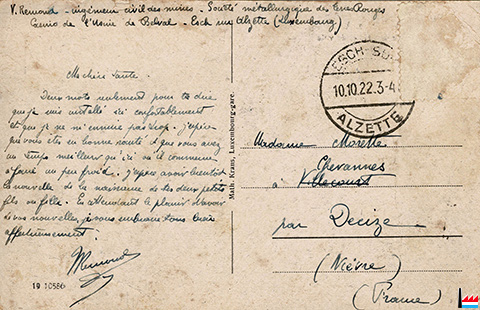 V. Remond - ingénieur civil des mines - Société métallurgique des Terres Rouges
Casino de l'Usine de Belval - Esch sur Alzette (Luxembourg)
Ma chère Tante.
Deux mots seulement pour te dire
que je suis installé ici confortablement
et que je ne m'ennuie pas trop. J'espère
que vous êtes en bonne santé et que vous avez
un temps meilleur qu'ici où il commence
à faire un peu froid. J'espère avoir bientôt
la nouvelle de la naissance de deux petits
fils ou filles. En attendant le plaisir d'avoir
de vos nouvelles, je vous embrasse tous bien
affectueusement.
Remond
19 10586
Math. Kraus, Luxembourg-gare.
ESCH-SUR-
10.10.22.3-4
ALZETTE
Madame Morette
Chevannes
à Villecourt
par Decize
(Nièvre)
(France)